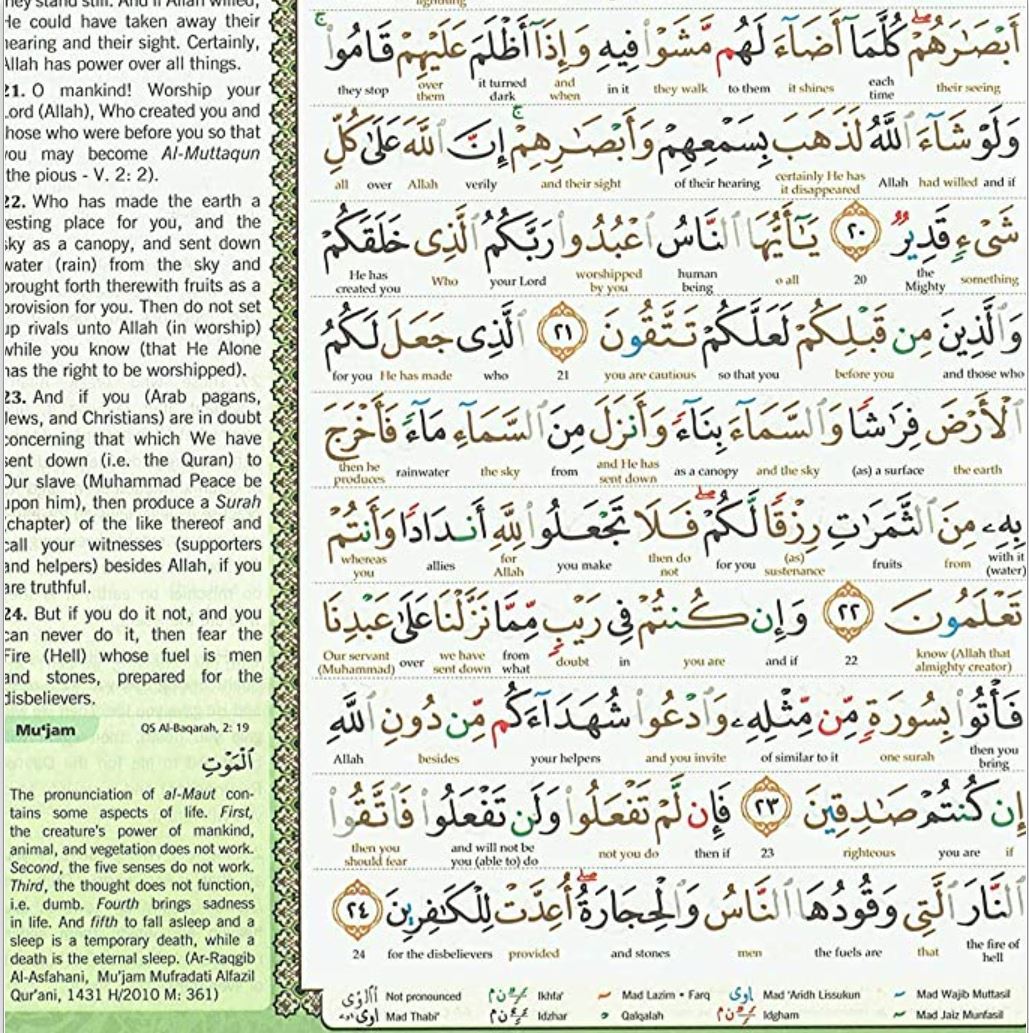 He could have taken away their
hearing and their sight. Certainly,
Allah has power over all things.
21. O mankind! Worship your
Lord (Allah), Who created you and
those who were before you so that
you may become Al-Muttaqun
(the pious - V. 2: 2).
22. Who has made the earth a
resting place for you, and the
sky as a canopy, and sent down
water (rain) from the sky and
brought forth therewith fruits as a
provision for you. Then do not set
up rivals unto Allah (in worship)
while you know (that He Alone
has the right to be worshipped).
23. And if you (Arab pagans,
Jews, and Christians) are in doubt
concerning that which We have
sent down (i.e. the Quran) to
Our slave (Muhammad Peace be
upon him), then produce a Surah
(chapter) of the like thereof and
call your witnesses (supporters
and helpers) besides Allah, if you
are truthful.
24. But if you do it not, and you
can never do it, then fear the
Fire (Hell) whose fuel is men
and stones, prepared for the
disbelievers.
Mu'jam QS Al-Baqarah, 2: 19
ٱلْمَوْتِ
The pronunciation of al-Maut con-
tains some aspects of life. First,
the creature's power of mankind,
animal, and vegetation does not work.
Second, the five senses do not work.
Third, the thought does not function,
i.e. dumb. Fourth brings sadness
in life. And fifth to fall asleep and a
sleep is a temporary death, while a
death is the eternal sleep. (Ar-Raqgib
Al-Asfahani, Mu'jam Mufradati Alfazil
Qur'ani, 1431 H/2010 M: 361)
أَبْصَٰرَهُمْ ۖ كُلَّمَآ أَضَآءَ لَهُم مَّشَوْا۟ فِيهِ وَإِذَآ أَظْلَمَ عَلَيْهِمْ قَامُوا۟ ۚ
their seeing each time it shines to them they walk in it and when it turned dark over them they stop
وَلَوْ شَآءَ ٱللَّهُ لَذَهَبَ بِسَمْعِهِمْ وَأَبْصَٰرِهِمْ ۚ إِنَّ ٱللَّهَ عَلَىٰ كُلِّ
and if had willed Allah certainly He has it disappeared of their hearing and their sight verily Allah over all
شَىْءٍ قَدِيرٌ ٢٠ يَٰٓأَيُّهَا ٱلنَّاسُ ٱعْبُدُوا۟ رَبَّكُمُ ٱلَّذِى خَلَقَكُمْ
something the Mighty 20 o all human being worshipped by you your Lord Who He has created you
وَٱلَّذِينَ مِن قَبْلِكُمْ لَعَلَّكُمْ تَتَّقُونَ ٢١ ٱلَّذِى جَعَلَ لَكُمُ
and those who before you so that you you are cautious 21 who He has made for you
ٱلْأَرْضَ فِرَٰشًا وَٱلسَّمَآءَ بِنَآءً وَأَنزَلَ مِنَ ٱلسَّمَآءِ مَآءً فَأَخْرَجَ
the earth (as) a surface and the sky as a canopy and He has sent down from the sky rainwater then he produces
بِهِۦ مِنَ ٱلثَّمَرَٰتِ رِزْقًا لَّكُمْ ۖ فَلَا تَجْعَلُوا۟ لِلَّهِ أَندَادًا وَأَنتُمْ
with it (water) from fruits (as) sustenance for you then do not you make for Allah allies whereas you
تَعْلَمُونَ ٢٢ وَإِن كُنتُمْ فِى رَيْبٍ مِّمَّا نَزَّلْنَا عَلَىٰ عَبْدِنَا
know (Allah that almighty creator) 22 and if you are in doubt from what we have sent down over Our servant (Muhammad)
فَأْتُوا۟ بِسُورَةٍ مِّن مِّثْلِهِۦ وَٱدْعُوا۟ شُهَدَآءَكُم مِّن دُونِ ٱللَّهِ
then you bring one surah of similar to it and you invite your helpers besides Allah
إِن كُنتُمْ صَٰدِقِينَ ٢٣ فَإِن لَّمْ تَفْعَلُوا۟ وَلَن تَفْعَلُوا۟ فَٱتَّقُوا۟
if you are righteous 23 then if not you do and will not be you (able to) do then you should fear
ٱلنَّارَ ٱلَّتِى وَقُودُهَا ٱلنَّاسُ وَٱلْحِجَارَةُ ۖ أُعِدَّتْ لِلْكَٰفِرِينَ ٢٤
the fire of hell that the fuels are men and stones provided for the disbelievers 24
Not pronounced Ikhfa' Mad Lazim • Farq Mad 'Aridh Lissukun Mad Wajib Muttasil
Mad Thabi' Idzhar Qalqalah Idgham Mad Jaiz Munfasil